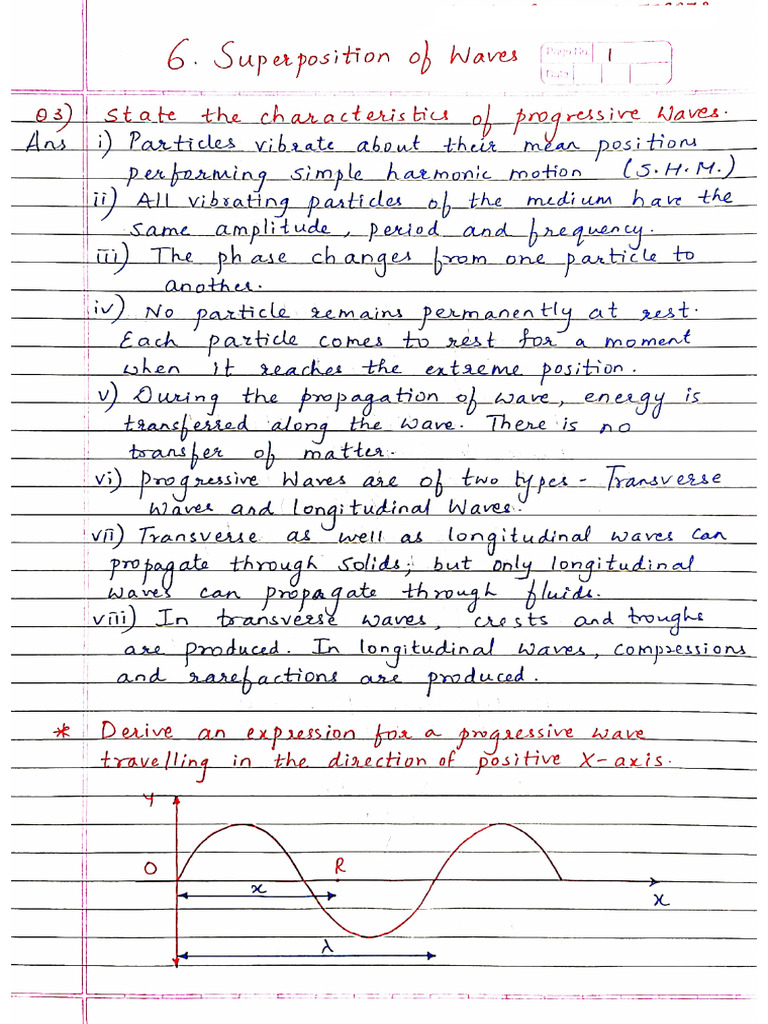 6. Superposition of Waves
Page No. 1
Date
Q3) State the characteristics of progressive Waves.
Ans i) Particles vibrate about their mean positions
performing simple harmonic motion (S.H.M.)
ii) All vibrating particles of the medium have the
same amplitude, period and frequency.
iii) The phase changes from one particle to
another.
iv) No particle remains permanently at rest.
Each particle comes to rest for a moment
when it reaches the extreme position.
v) During the propagation of wave, energy is
transferred along the wave. There is no
transfer of matter.
vi) Progressive Waves are of two types - Transverse
Waves and Longitudinal Waves.
vii) Transverse as well as longitudinal waves can
propagate through solids; but only longitudinal
waves can propagate through fluids.
viii) In transverse waves, crests and troughs
are produced. In longitudinal waves, compressions
and rarefactions are produced.
* Derive an expression for a progressive wave
travelling in the direction of positive X-axis.
Y
O
R
x
x
λ